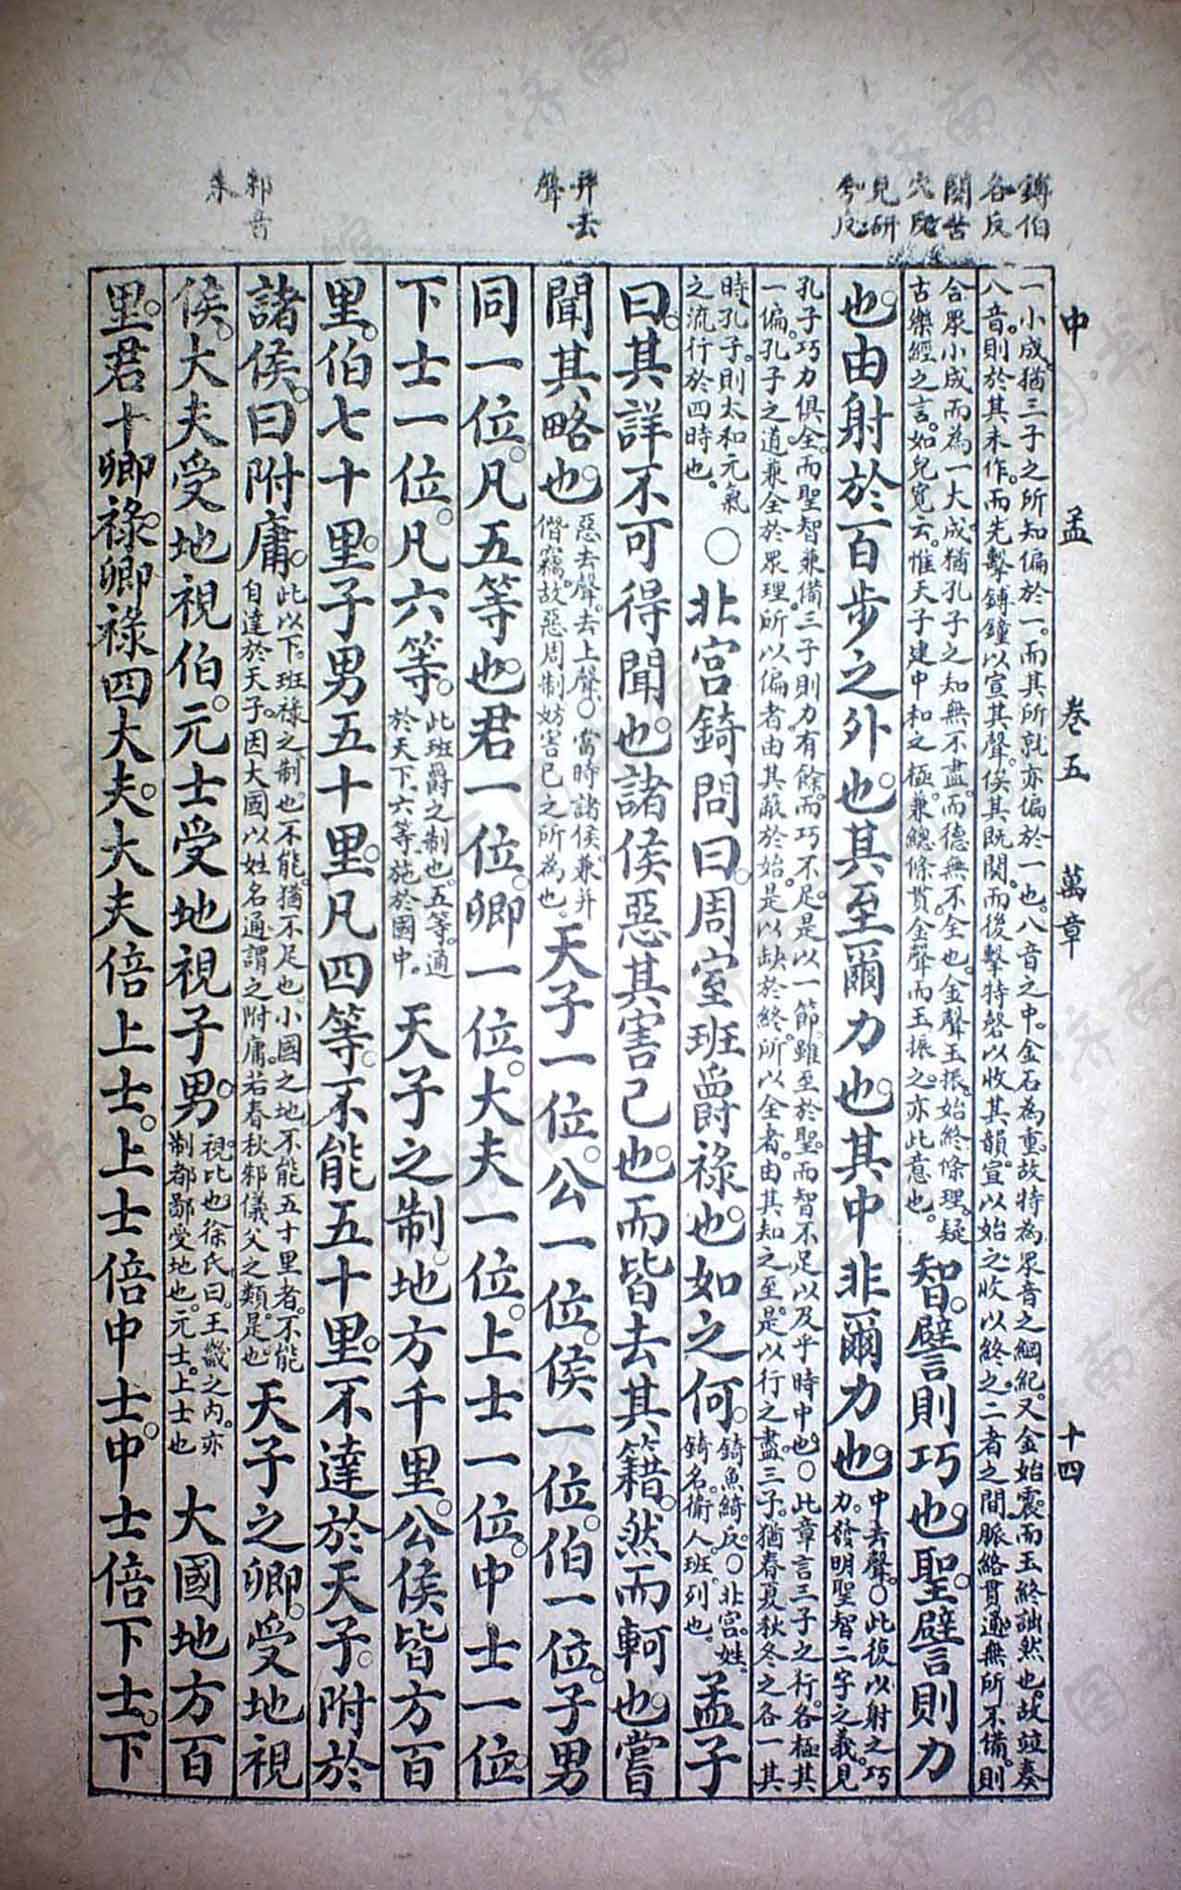 鎛伯
各反
闋苦
穴反
兒研
兮反
并去
聲
邾音
朱
中 孟 卷五 萬章 十四
一小成猶三子之所知偏於一而其所就亦偏於一也八音之中金石為重故特為眾音之綱紀又金始震而玉終詘然也故竝奏
八音則於其未作而先擊鎛鐘以宣其聲俟其既闋而後擊特磬以收其韻宣以始之收以終之二者之間脈絡貫通無所不備則
合眾小成而為一大成猶孔子之知無不盡而德無不全也金聲玉振始終條理疑
古樂經之言如兒寬云惟天子建中和之極兼總條貫金聲而玉振之亦此意也
智譬則巧也聖譬則力
也由射於百步之外也其至爾力也其中非爾力也
中去聲○此復以射之巧
力發明聖智二字之義見
孔子巧力俱全而聖智兼備三子則力有餘而巧不足是以一節雖至於聖而智不足以及乎時中也○此章言三子之行各極其
一偏孔子之道兼全於眾理所以偏者由其蔽於始是以缺於終所以全者由其知之至是以行之盡三子猶春夏秋冬之各一其
時孔子則太和元氣
之流行於四時也
○北宮錡問曰周室班爵祿也如之何
錡魚綺反○北宮姓
錡名衛人班列也
孟子
曰其詳不可得聞也諸侯惡其害己也而皆去其籍然而軻也嘗
聞其略也
惡去聲去上聲○當時諸侯兼并
僭竊故惡周制妨害己之所為也
天子一位公一位侯一位伯一位子男
同一位凡五等也君一位卿一位大夫一位上士一位中士一位
下士一位凡六等
此班爵之制也五等通
於天下六等施於國中
天子之制地方千里公侯皆方百
里伯七十里子男五十里凡四等不能五十里不達於天子附於
諸侯曰附庸
此以下班祿之制也不能猶不足也小國之地不能五十里者不能
自達於天子因大國以姓名通謂之附庸若春秋邾儀父之類是也
天子之卿受地視
侯大夫受地視伯元士受地視子男
視比也徐氏曰王畿之內亦
制都鄙受地也元士上士也
大國地方百
里君十卿祿卿祿四大夫大夫倍上士上士倍中士中士倍下士下